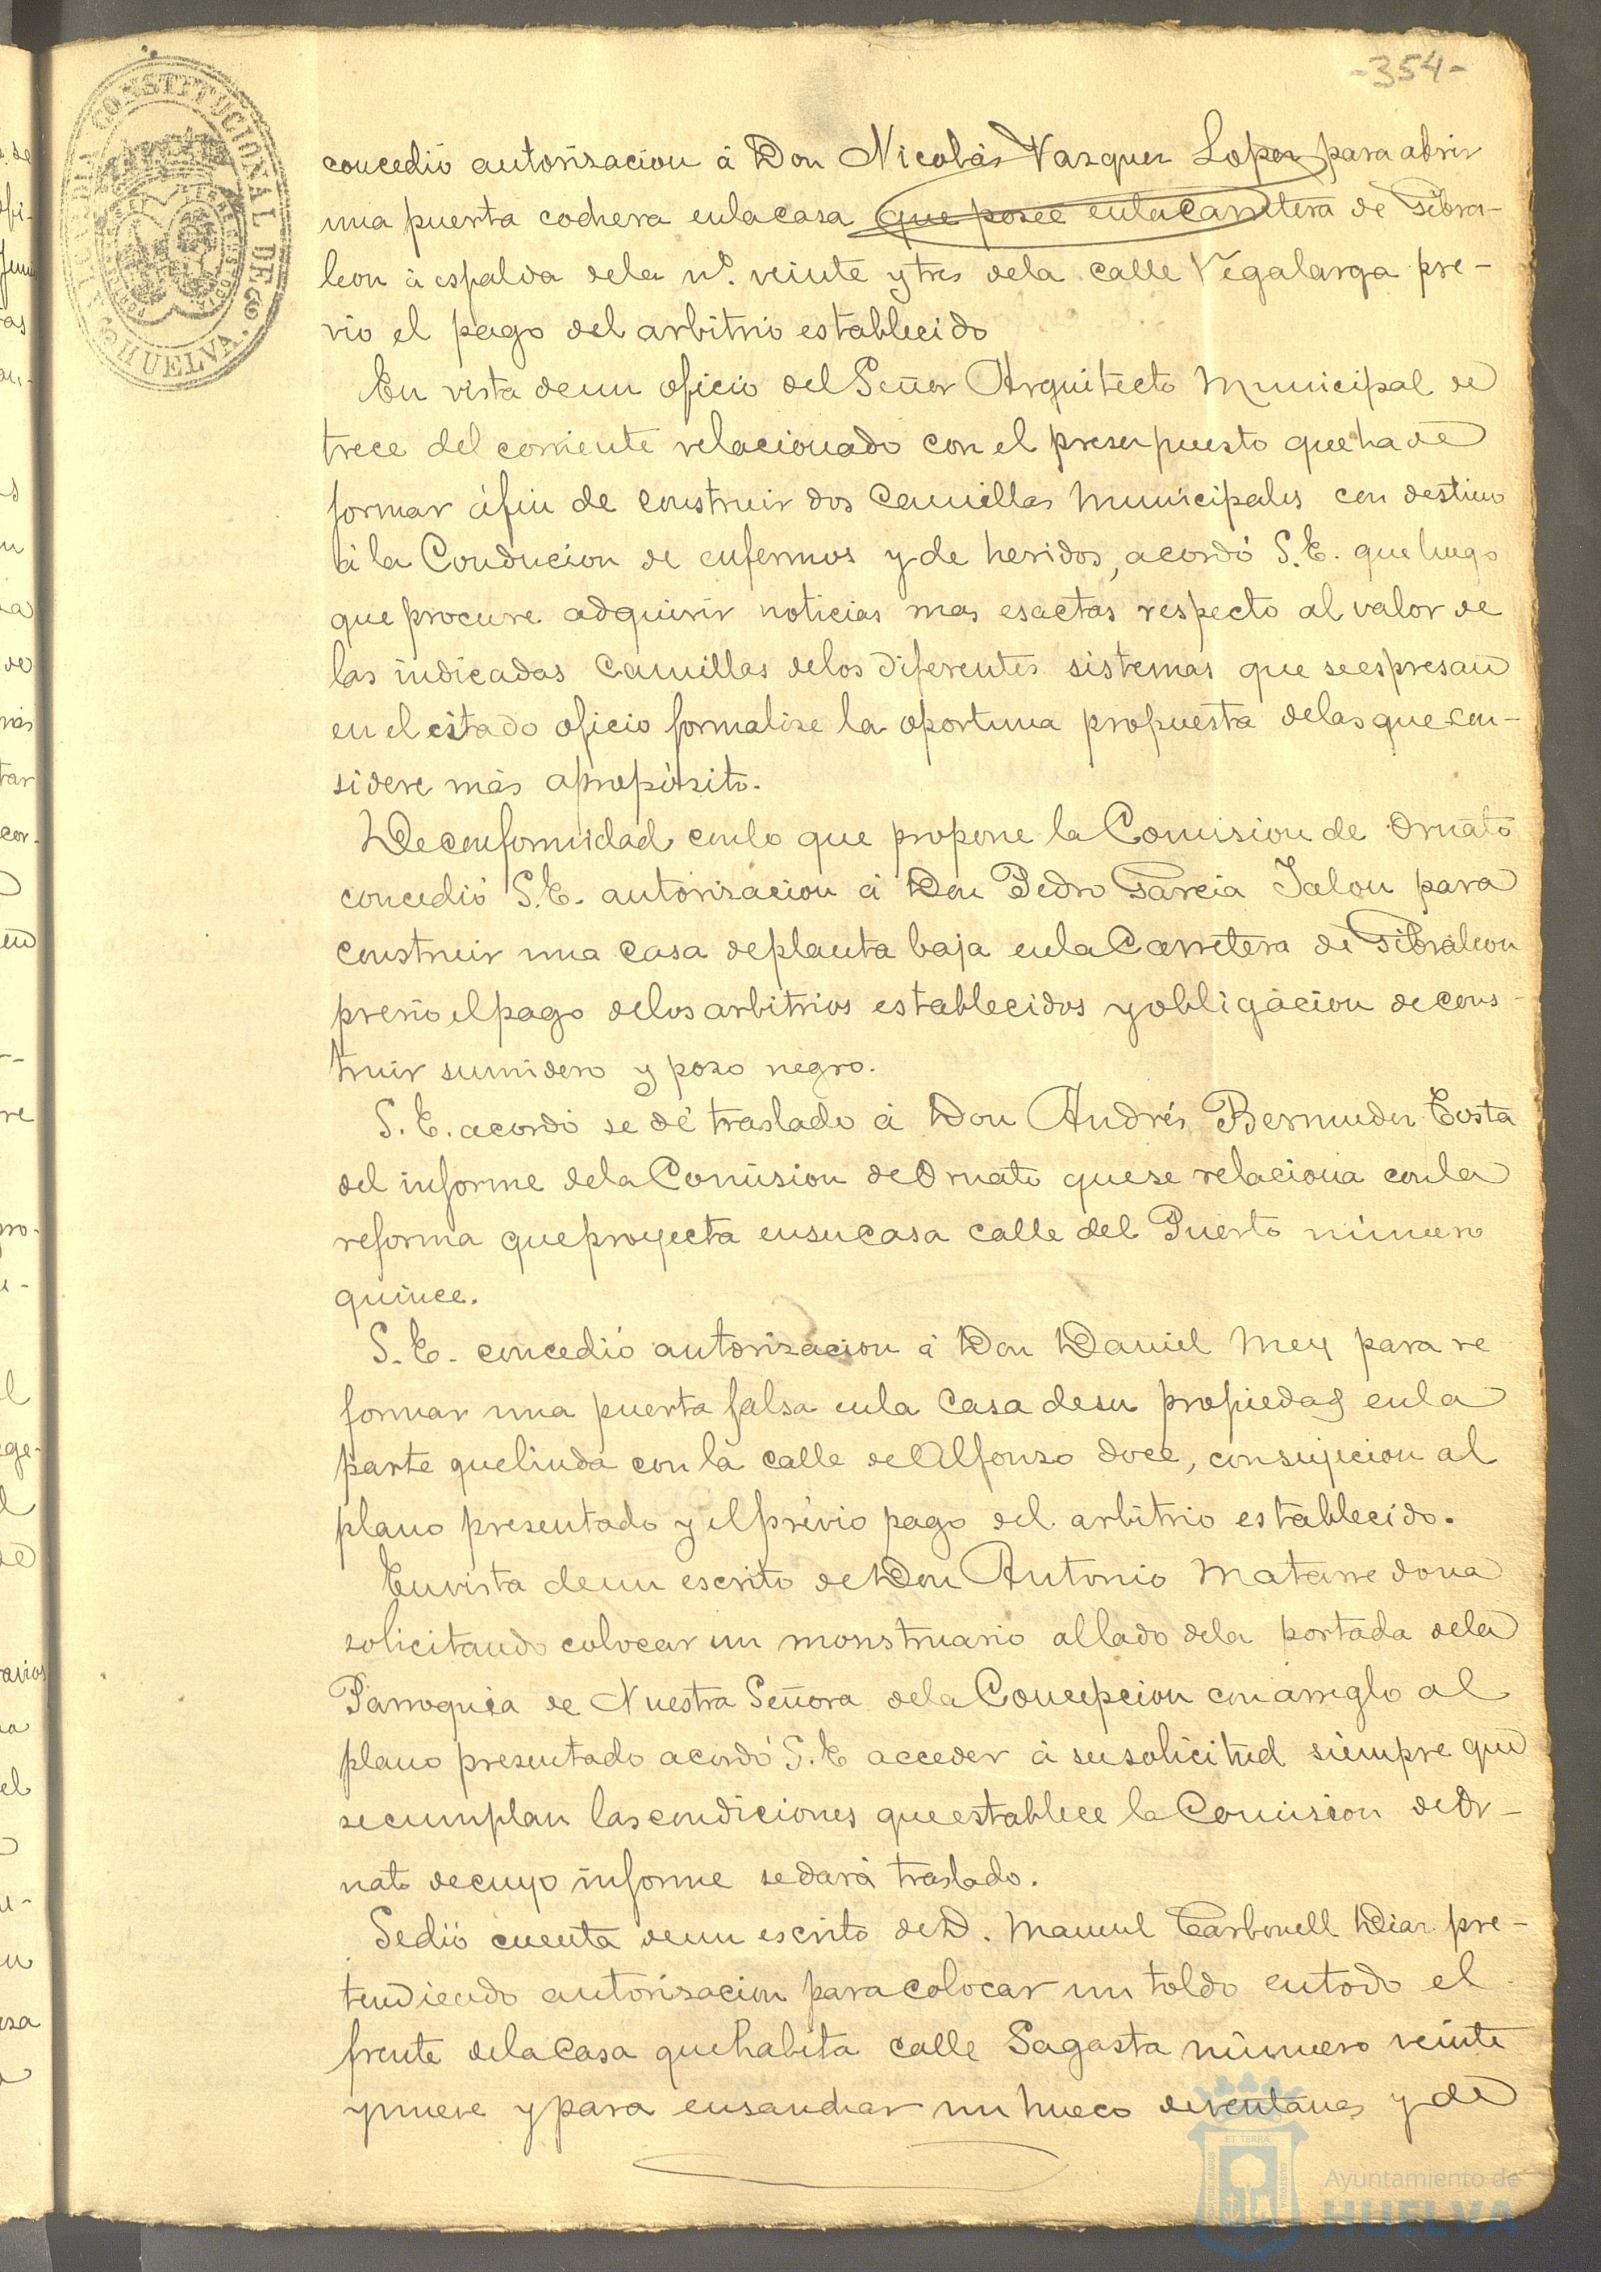 -354-
ALCALDIA CONSTITUCIONAL DE HUELVA
concedió autorizacion á Don Nicolás Vazquez Lopez para abrir
una puerta cochera en la casa que posee en la Carretera de Gibra-
leon á espalda de la nº. veinte y tres de la calle Vegalarga pre-
vio el pago del arbitrio establecido
En vista de un oficio del Señor Arquitecto Municipal de
trece del corriente relacionado con el presupuesto que ha de
formar á fin de construir dos Camillas Municipales con destino
á la Conducion de enfermos y de heridos, acordó S.E. que luego
que procure adquirir noticias mas esactas respecto al valor de
las indicadas Camillas de los diferentes sistemas que se espresan
en el citado oficio formalise la oportuna propuesta de las que con-
sidere más apropósito.
De conformidad con lo que propone la Comision de Ornato
concedió S.E. autorizacion á Don Pedro Garcia Jalon para
construir una casa de planta baja en la Carretera de Gibraleon
prévio el pago de los arbitrios establecidos y obligacion de cons-
truir sumidero y pozo negro.
S.E. acordó se dé traslado á Don Andrés Bermudez Costa
del informe de la Comision de Ornato que se relaciona con la
reforma que proyecta en su casa calle del Puerto número
quince.
S.E. concedió autorizacion á Don Daniel Mey para re
formar una puerta falsa en la Casa de su propiedad en la
parte que linda con la calle de Alfonso doce, con sujecion al
plano presentado y el prévio pago del arbitrio establecido.
En vista de un escrito de Don Antonio Matarredona
solicitando colocar un monstruario al lado de la portada de la
Parroquia de Nuestra Señora de la Concepcion con arreglo al
plano presentado acordó S.E. acceder á su solicitud siempre que
se cumplan las condiciones que establece la Comision de Or-
nato de cuyo informe se dará traslado.
Se dió cuenta de un escrito de D. Manuel Carbonell Diaz pre-
tendiendo autorizacion para colocar un toldo en todo el
frente de la Casa que habita calle Sagasta número veinte
y nueve y para ensanchar un hueco de ventanas y de
Ayuntamiento de
HUELVA